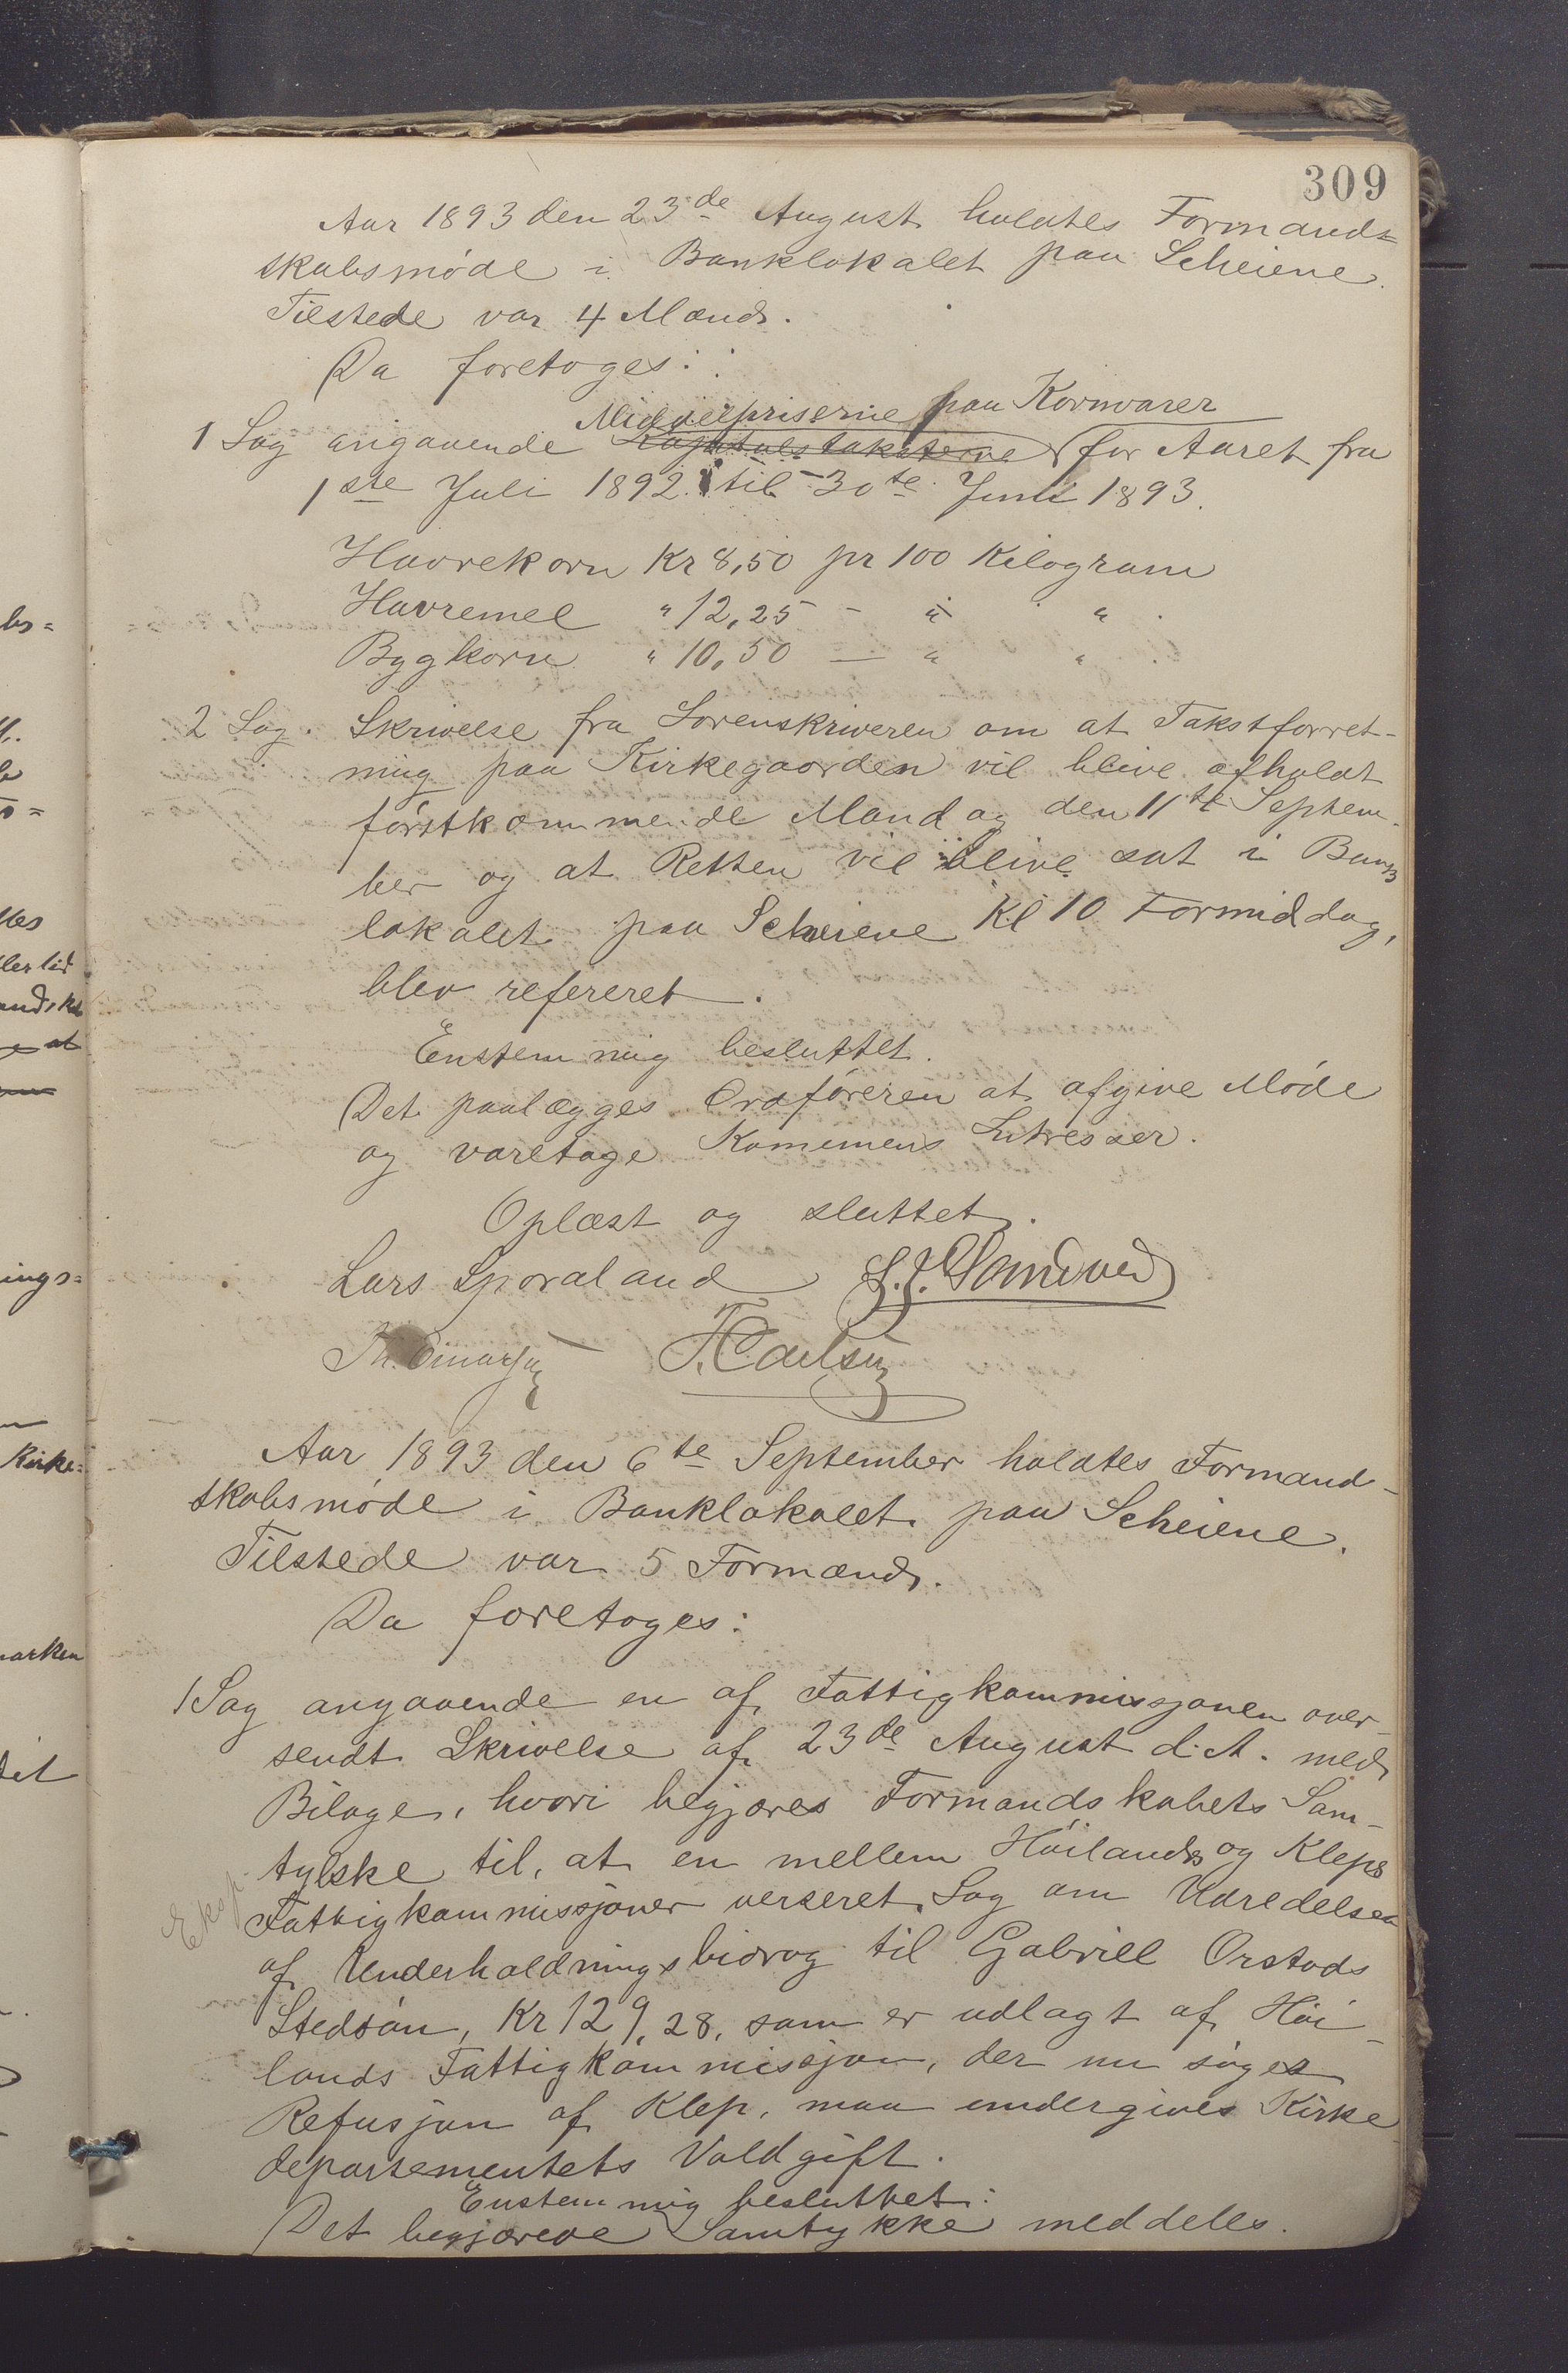 309
Aar 1893 den 23de August holdtes Formand-
skabsmøde i Banklokalet paa Scheiene.
Tilstede var 4 Mænd.
Da foretoges:
Middelpriserne paa Kornvarer
1 Sag angaaende Kapitelstaksterne for Aaret fra
1ste Juli 1892 til 30te Juni 1893.
Havrekorn Kr 8,50 pr 100 Kilogram
Havremel " 12,25 - " "
Bygkorn " 10,50 — " "
2 Sag. Skrivelse fra Sorenskriveren om at Takstforret-
ning paa Kirkegaarden vil blive afholdt
førstkommende Mandag den 11te Septem-
ber og at Retten vil blive sat i Bank
lokalet paa Scheiene Kl 10 Formiddag,
blev refereret.
Enstemmig besluttet.
Det paalægges Ordføreren at afgive Møde
og varetage Komunens Intresser.
Oplæst og sluttet.
Lars Sporaland
Aar 1893 den 6te September holdtes Formand-
skabsmøde i Banklokalet paa Scheiene.
Tilstede var 5 Formænd.
Da foretoges:
1 Sag angaaende en af Fattigkommissjonen over-
sendt Skrivelse af 23de August d.A. med
Bilage, hvori begjæres Formandskabets Sam-
tykke til, at en mellem Høilands og Kleps
Eksp.
Fattigkommissjoner verseret Sag om Udredelsen
af Underholdningsbidrag til Gabriel Orstads
Stedsøn, Kr 129,28, som er udlagt af Høi-
lands Fattigkommissjon, der nu søges
Refusjon af Klep, maa undergives Kirke
departementets Voldgift.
Enstemmig besluttet:
Det begjærede Samtykke meddeles.